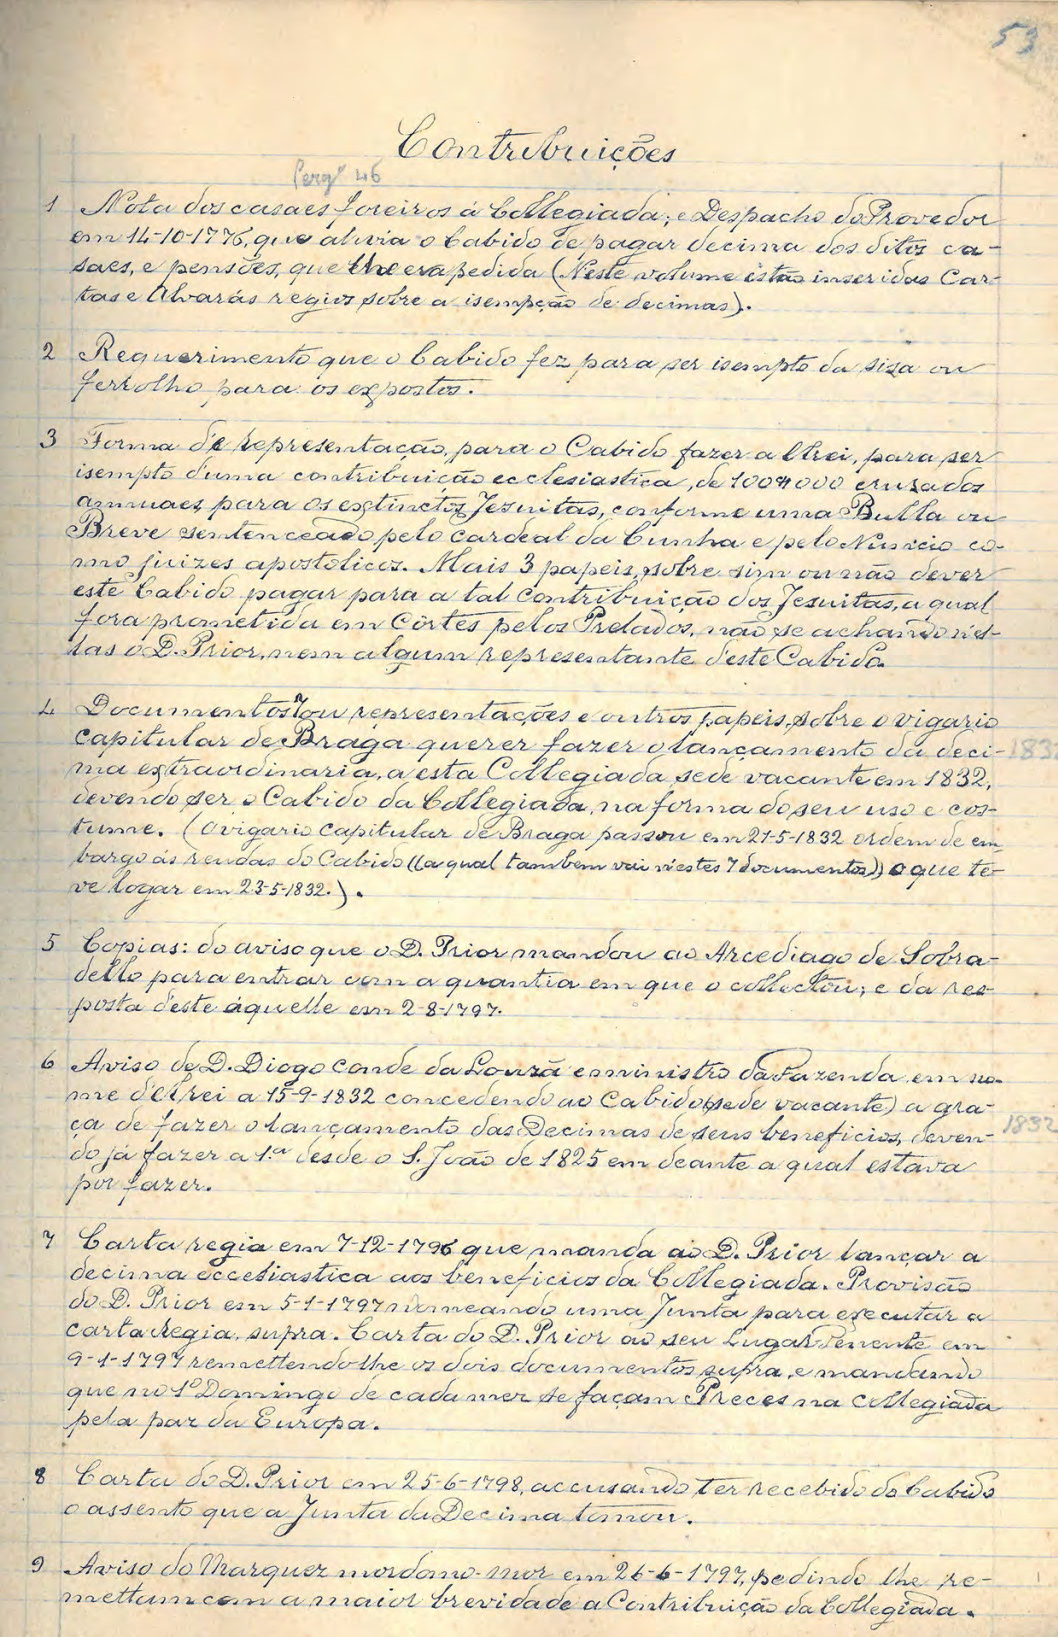 53
Contribuições
Perg.º 46
1 Nota dos casaes foreiros á Collegiada; e Despacho do Provedor
em 14-10-1776, que alivia o Cabido de pagar decima dos ditos ca-
saes, e pensões, que lhe era pedida (Neste volume estão inseridas Car-
tas e Alvarás regios sobre a isempção de decimas).
2 Requerimento que o Cabido fez para ser isempto da siza ou
ferrolho, para os expostos.
3 Forma de representação, para o Cabido fazer a Elrei, para ser
isempto d'uma contribuição ecclesiastica, de 100#000 cruzados
annuaes, para os extinctos Jesuitas, conforme uma Bulla ou
Breve sentenceado pelo cardeal da Cunha e pelo Nuncio co-
mo juizes apostolicos. Mais 3 papeis, sobre sim ou não dever
este Cabido pagar para a tal contribuição dos Jesuitas, a qual
fora prometida em Côrtes pelos Prelados, não se achando n'es-
tas o D. Prior, nem algum representante d'este Cabido.
4 Documentos 7 ou representações e outros papeis, sobre o vigario
capitular de Braga querer fazer o lançamento da deci- 1832
ma extraordinaria, a esta Collegiada sede vacante em 1832,
devendo ser o Cabido da Collegiada, na forma do seu uso e cos-
tume. (O vigario capitular de Braga passou em 21-5-1832 ordem de em
bargo ás rendas do Cabido ((a qual tambem vai n'estes 7 documentos)) o que te-
ve logar em 23-5-1832.).
5 Copias: do aviso que o D. Prior mandou ao Arcediago de Sobra-
dello para entrar com a quantia em que o collectou; e da res-
posta d'este áquelle em 2-8-1797.
6 Aviso de D. Diogo conde da Louzã e ministro da Fazenda em no-
me d'Elrei a 15-9-1832 concedendo ao Cabido (sede vacante) a gra-
ça de fazer o lançamento das Decimas de seus beneficios, deven- 1832
do já fazer a 1.ª desde o S. João de 1825 em deante a qual estava
por fazer.
7 Carta regia em 7-12-1796 que manda ao D. Prior lançar a
decima ecclesiastica aos beneficios da Collegiada. Provisão
do D. Prior em 5-1-1797 nomeando uma Junta para executar a
carta regia supra. Carta do D. Prior ao seu Lugar Tenente em
9-1-1797 remettendo-lhe os dois documentos supra, e mandando
que no 1º Domingo de cada mez se façam Preces na collegiada
pela paz da Europa.
8 Carta do D. Prior em 25-6-1798, accusando ter recebido do Cabido
o assento que a Junta da Decima tomou.
9 Aviso do Marquez mordomo-mor em 26-6-1797, pedindo lhe re-
mettam com a maior brevidade a Contribuição da Collegiada.